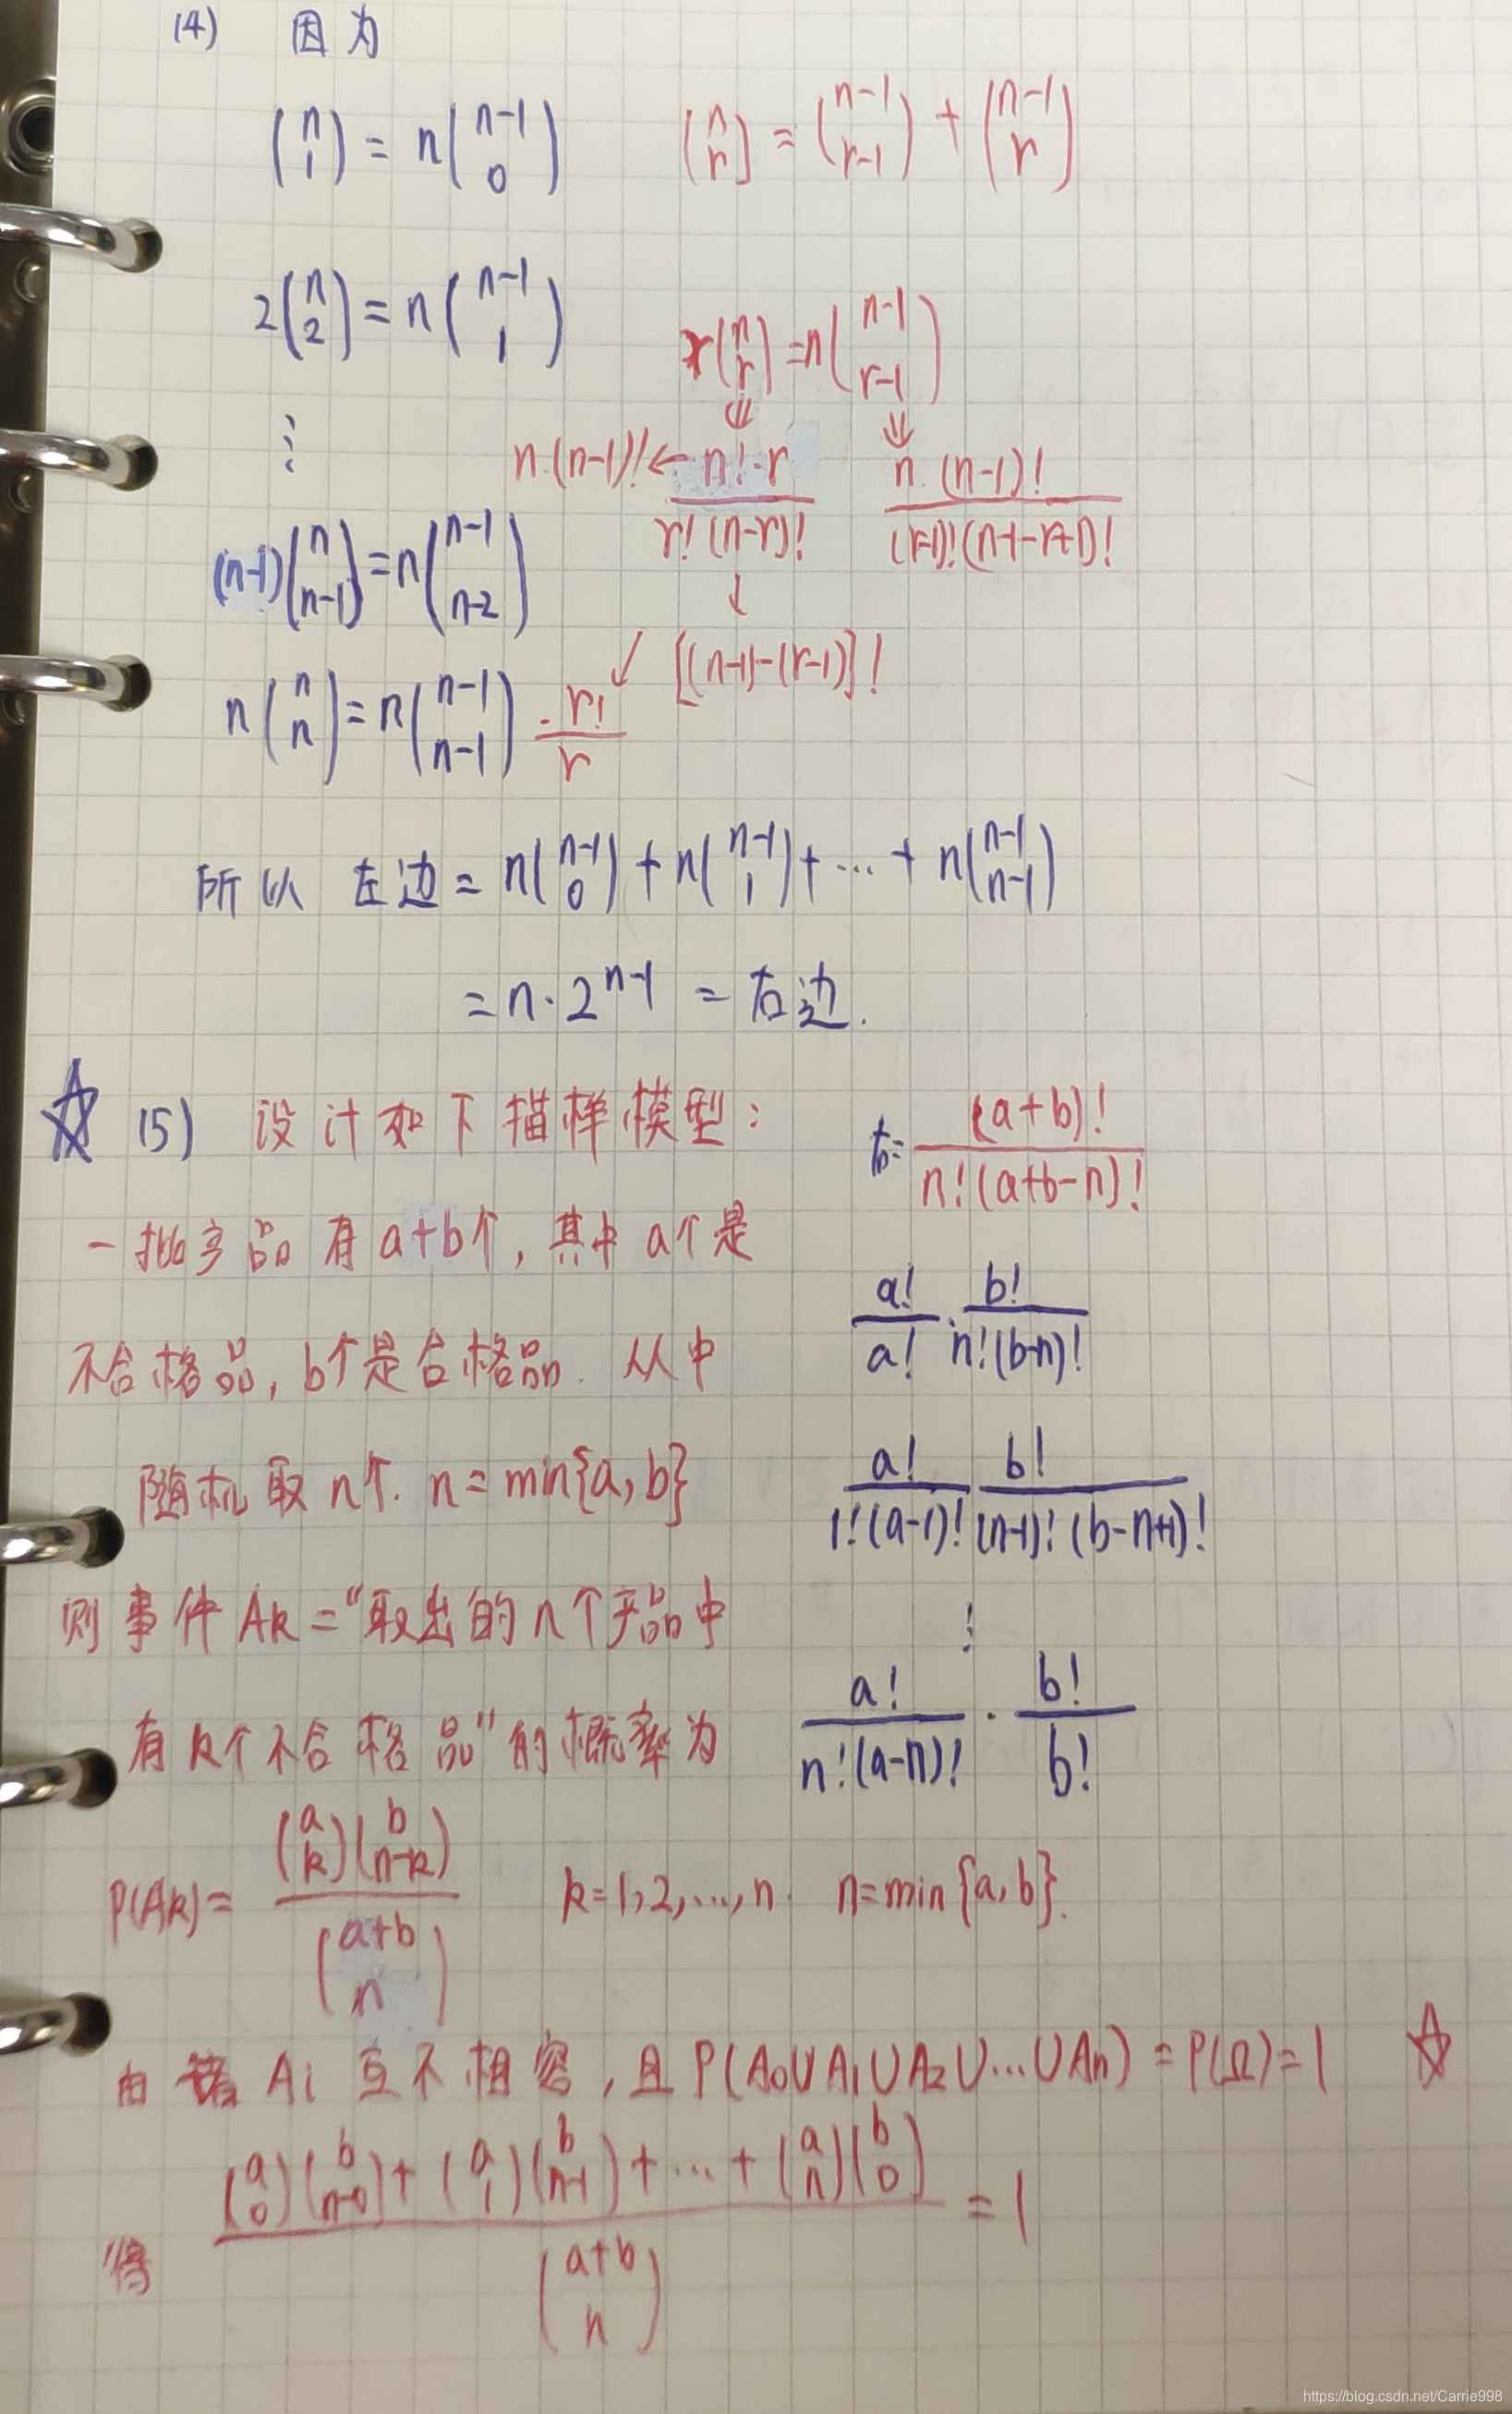 (4) 因为
(n 1) = n(n-1 0)    (n r) = (n-1 r-1) + (n-1 r)
2(n 2) = n(n-1 1)    r(n r) = n(n-1 r-1)
⋮    ⇓    ⇓
n·(n-1)! ← n!·r / r!(n-r)!    n·(n-1)! / (r-1)!(n-1-r+1)!
(n-1)(n n-1) = n(n-1 n-2)    ↓
↙ [(n-1)-(r-1)]!
n(n n) = n(n-1 n-1)    r! / r
所以 左边 = n(n-1 0) + n(n-1 1) + … + n(n-1 n-1)
= n·2^(n-1) = 右边.
☆ (5) 设计如下描样模型:    右= (a+b)! / n!(a+b-n)!
一批产品有a+b个, 其中a个是    a!/a! · b!/n!(b-n)!
不合格品, b个是合格品. 从中
随机取n个. n=min{a,b}    a!/1!(a-1)! b!/(n-1)!(b-n+1)!
则事件Ak="取出的n个产品中    ⋮
有k个不合格品"的概率为    a!/n!(a-n)! · b!/b!
P(Ak) = (a k)(b n-k) / (a+b n)    k=1,2,…,n.    n=min{a,b}.
由诸Ai互不相容, 且P(A0∪A1∪A2∪…∪An) = P(Ω)=1 ☆
得 (a 0)(b n-0) + (a 1)(b n-1) + … + (a n)(b 0) / (a+b n) = 1
https://blog.csdn.net/Carrie998